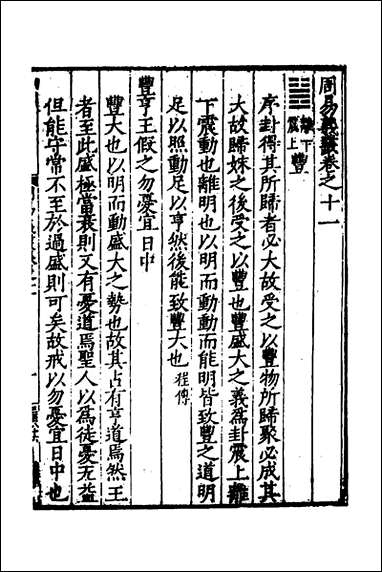 周易義叢卷之十一
離下震上 豐
序卦得其所歸者必大故受之以豐物所歸聚必成其
大故歸妹之後受之以豐也豐盛大之義爲卦震上離
下震動也離明也以明而動動而能明皆致豐之道明
足以照動足以亨然後能致豐大也程傳
豐亨王假之勿憂宜日中
豐大也以明而動盛大之勢也故其占有亨道焉然王
者至此盛極當衰則又有憂道焉聖人以爲徒憂无益
但能守常不至於過盛則可矣故戒以勿憂宜日中也